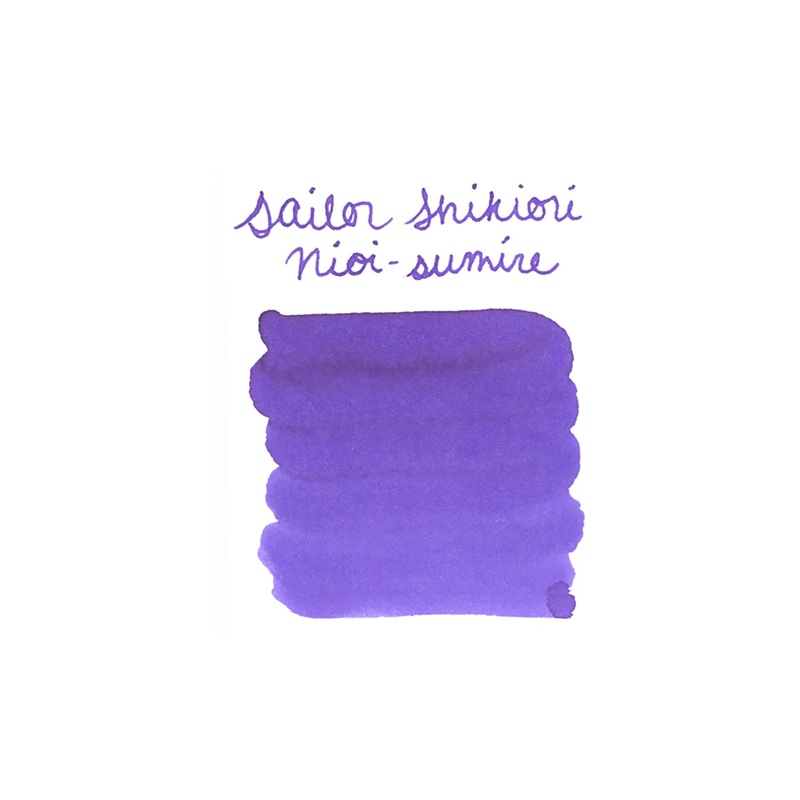 Sailor Shikiori
Nioi-sumire